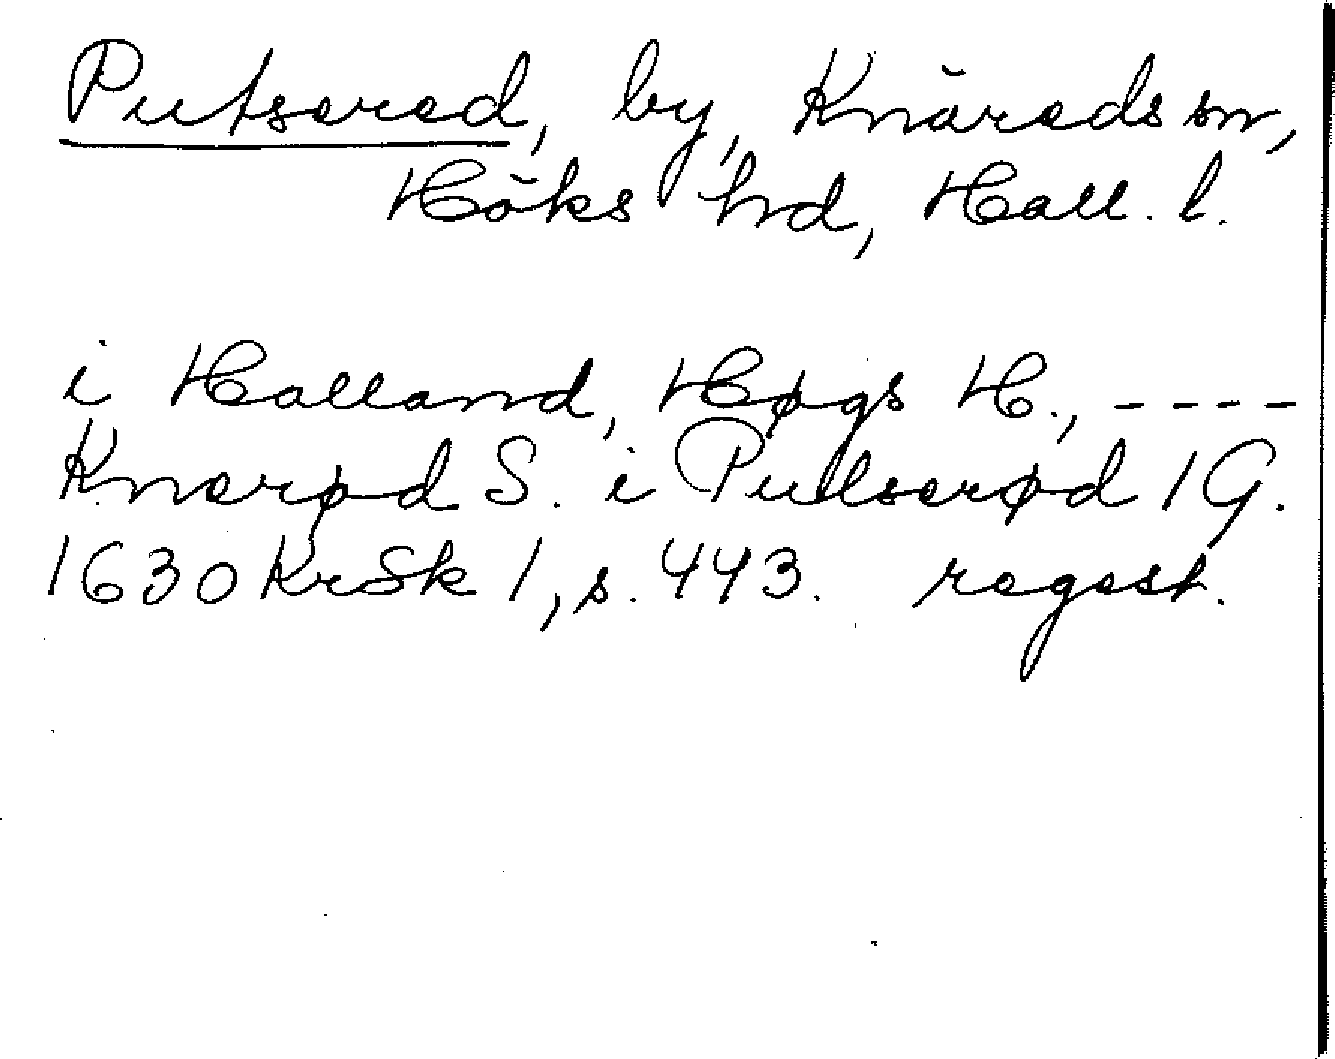 Putsered, by, Knäreds sn,
Höks hd, Hall. l.
i Halland, Høgs H., ----
Knerød S. i Pudserød 1 G.
1630 KrSk 1, s. 443. regest.